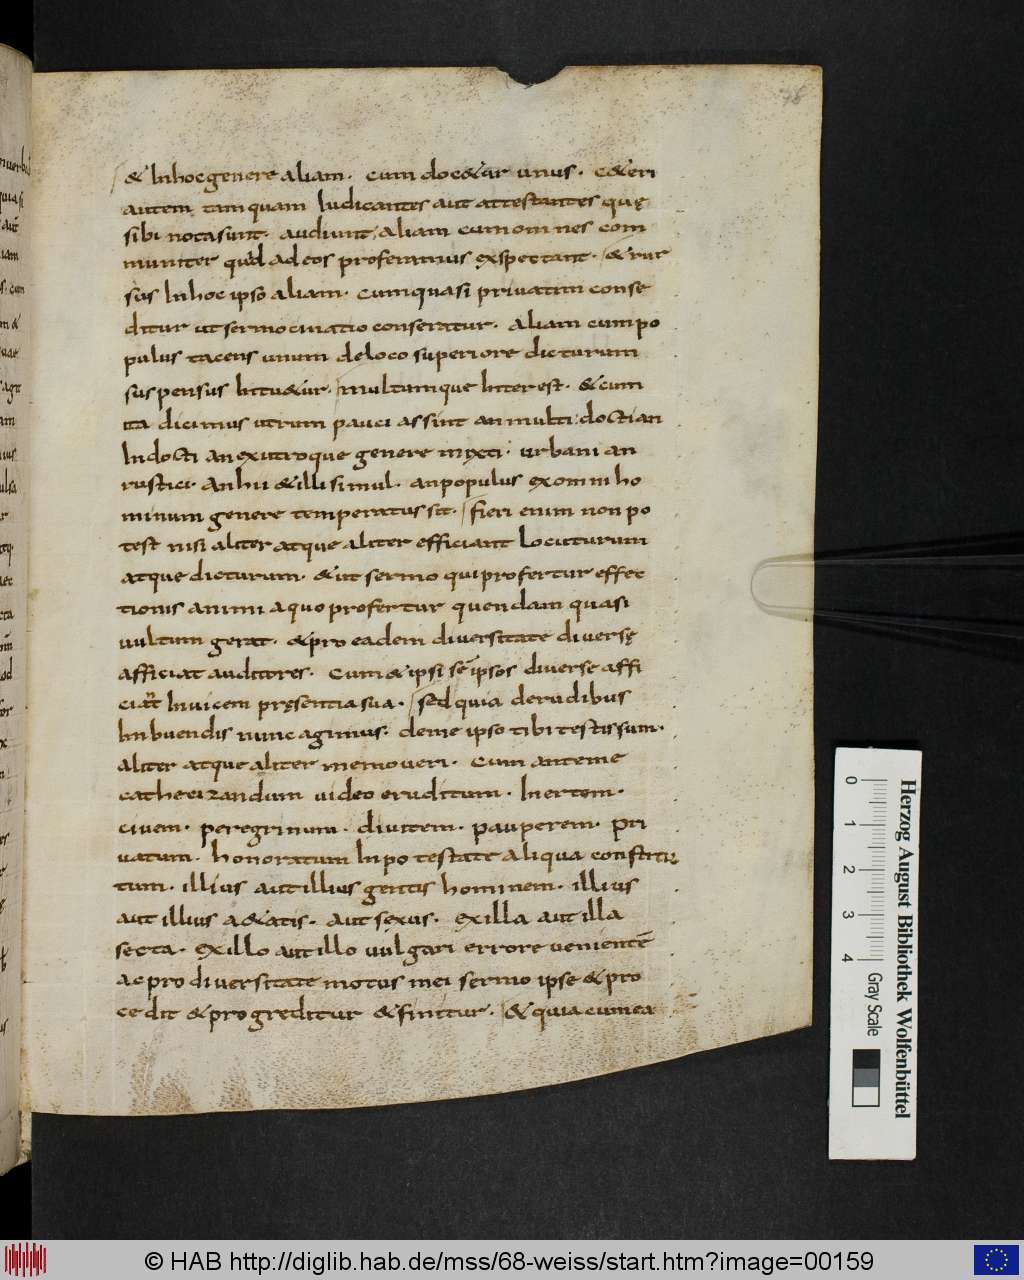 78
& In hoc genere aliam. cum doc&ur unus. c&eri
autem tamquam Iudicantes aut attestantes quę
sibi nota sunt audiunt, aliam cum omnes com
muniter quid ad eos proferamus expectant. & rur
sus In hoc ipso aliam. cum quasi privatim conse
ditur ut sermocinatio conseratur. Aliam cum po
pulus tacens unum de loco superiore dicturum
suspensus Intu&ur. multumque Interest. & cum
ita dicimus utrum pauci assint an multi docti an
Indocti an ex utroque genere myxti. urbani an
rustici. An hii & illi simul. an populus ex omni ho
minum genere temperatus sit. fieri enim non po
test nisi aliter atque aliter efficiant Locuturum
atque dicturum. & ut sermo qui profertur affec
tionis animi a quo profertur quendam quasi
vultum gerat. & pro eadem diversitate diversę
afficiat auditores. Cum & ipsi sē ipsos diverse affi
ciant Invicem pręsentia sua. sed quia de rudibus
Imbuendis nunc agimus. de me ipso tibi testis sum.
aliter atque aliter me moveri. Cum ante me
cathecizandum video eruditum. Inertem.
civem. peregrinum. divitem. pauperem. pri
vatum. honoratum In potestate aliqua constitu
tum. illius aut illius gentis hominem. illius
aut illius a&atis. aut sexus. ex illa aut illa
secta. ex illo aut illo vulgari errore venientē
ac pro diversitate motus mei sermo ipse & pro
cedit & progreditur & finitur. & quia cum ea
Herzog August Bibliothek Wolfenbüttel
0 1 2 3 4
Gray Scale
© HAB http://diglib.hab.de/mss/68-weiss/start.htm?image=00159